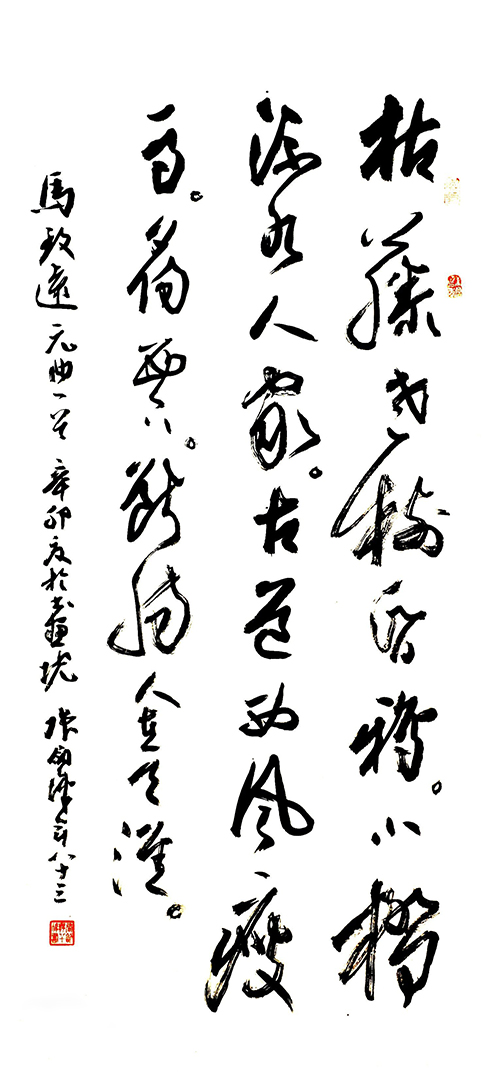 枯藤老樹昏鴉。小橋
流水人家。古道西风瘦
馬。夕陽西下。斷腸人在天涯。
馬致遠元曲一首 辛卯夏於 張 年八十三